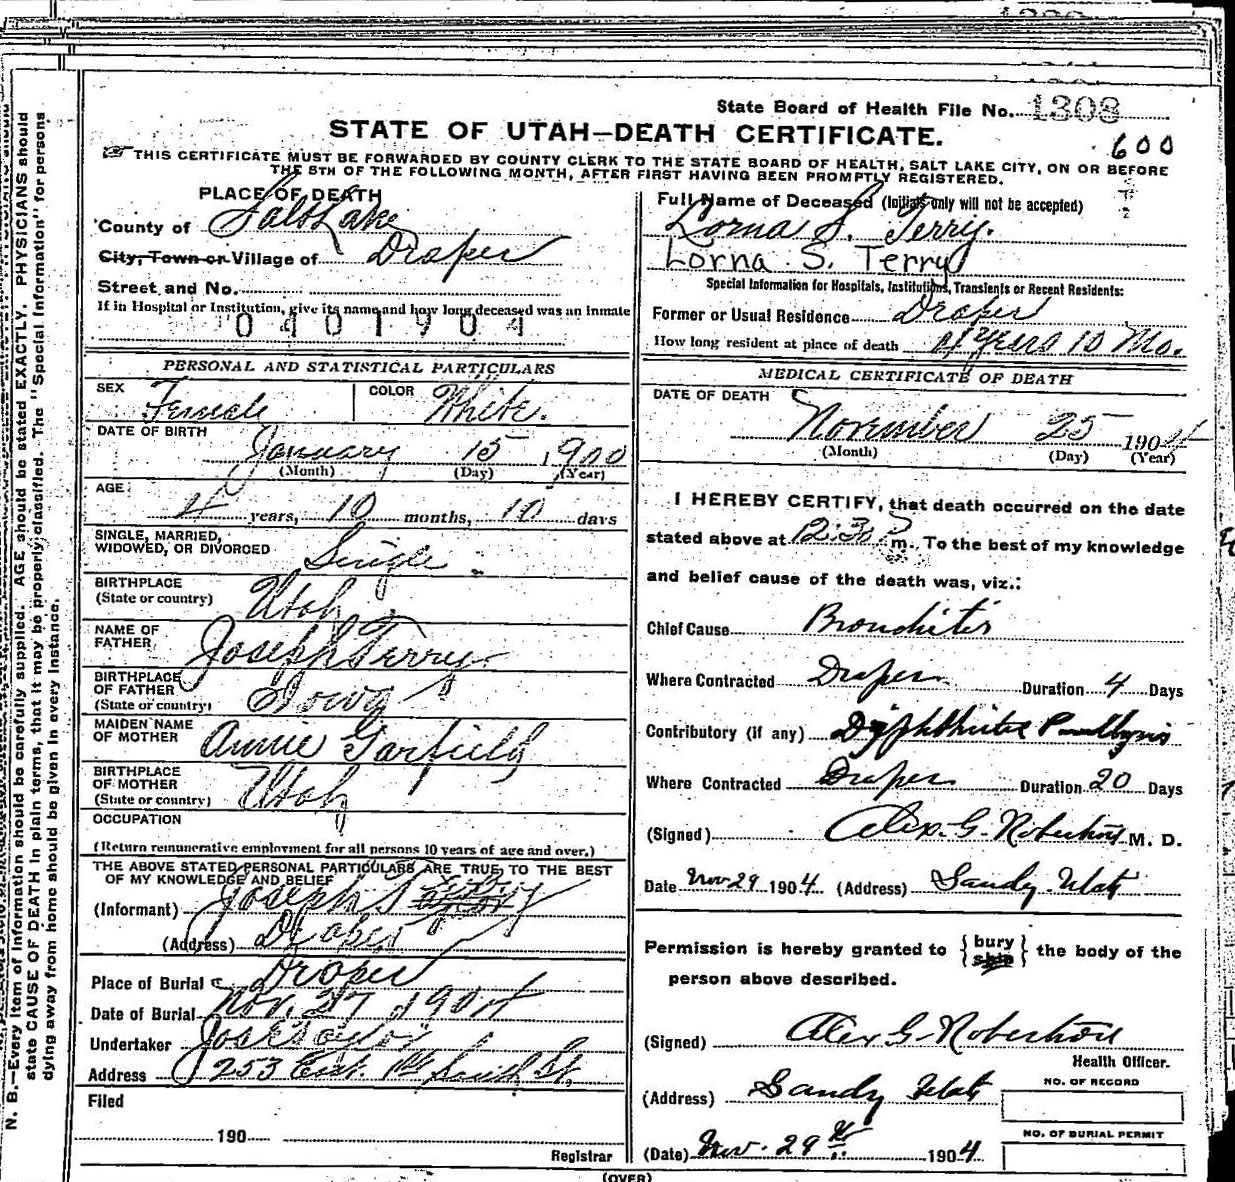 State Board of Health File No. 1308
STATE OF UTAH—DEATH CERTIFICATE.
600
THIS CERTIFICATE MUST BE FORWARDED BY COUNTY CLERK TO THE STATE BOARD OF HEALTH, SALT LAKE CITY, ON OR BEFORE
THE 5TH OF THE FOLLOWING MONTH, AFTER FIRST HAVING BEEN PROMPTLY REGISTERED.
PLACE OF DEATH
County of Salt Lake
City, Town or Village of Draper
Street and No.
If in Hospital or Institution, give its name and how long deceased was an inmate
0401904
PERSONAL AND STATISTICAL PARTICULARS
SEX Female COLOR White.
DATE OF BIRTH January 15 1900
(Month) (Day) (Year)
AGE
4 years, 10 months, 10 days
SINGLE, MARRIED,
WIDOWED, OR DIVORCED Single
BIRTHPLACE
(State or country) Utah
NAME OF
FATHER Joseph Terry
BIRTHPLACE
OF FATHER
(State or country) Iowa
MAIDEN NAME
OF MOTHER Annie Garfield
BIRTHPLACE
OF MOTHER
(State or country) Utah
OCCUPATION
(Return remunerative employment for all persons 10 years of age and over.)
THE ABOVE STATED PERSONAL PARTICULARS ARE TRUE TO THE BEST
OF MY KNOWLEDGE AND BELIEF
(Informant) Joseph S Terry
(Address) Draper
Place of Burial Draper
Date of Burial Nov. 27 1904
Undertaker Jos E Taylor
Address 253 East 1st South St.
Filed
190
Registrar
Full Name of Deceased (Initials only will not be accepted)
Lorna S. Terry.
Lorna S. Terry
Special Information for Hospitals, Institutions, Transients or Recent Residents:
Former or Usual Residence Draper
How long resident at place of death 4 Years 10 Mo.
MEDICAL CERTIFICATE OF DEATH
DATE OF DEATH
November 25 1904
(Month) (Day) (Year)
I HEREBY CERTIFY, that death occurred on the date
stated above at 12:30 P m. To the best of my knowledge
and belief cause of the death was, viz.:
Chief Cause Bronchitis
Where Contracted Draper Duration 4 Days
Contributory (if any) Diphtheritic Paralysis
Where Contracted Draper Duration 20 Days
(Signed) Alex. G. Robertson M. D.
Date Nov 29 1904 (Address) Sandy Utah
Permission is hereby granted to { bury
ship } the body of the
person above described.
(Signed) Alex G. Robertson
Health Officer.
(Address) Sandy Utah
NO. OF RECORD
NO. OF BURIAL PERMIT
(Date) Nov. 29th 1904
(OVER)
N. B.—Every item of information should be carefully supplied. AGE should be stated EXACTLY. PHYSICIANS should
state CAUSE OF DEATH in plain terms, that it may be properly classified. The "Special Information" for persons
dying away from home should be given in every instance.